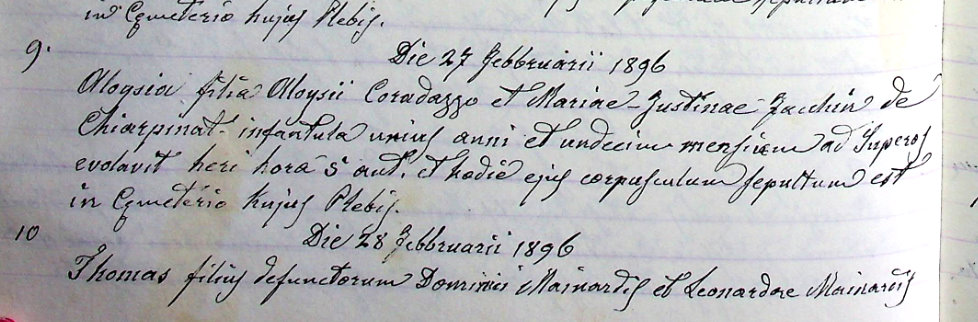 in Cymeterio hujus Plebis.
9.
Die 27 Febbruarii 1896
Aloysia filia Aloysii Coradazzo et Mariae-Justinae Zacchin de
Chiarpinat - infantula unius anni et undecim mensium ad Superos
evolavit heri hora 5 ant. et hodie ejus corpusculum sepultum est
in Cymeterio hujus Plebis.
10
Die 28 Febbruarii 1896
Thomas filius defunctorum Dominici Mainardis et Leonardae Mainardis